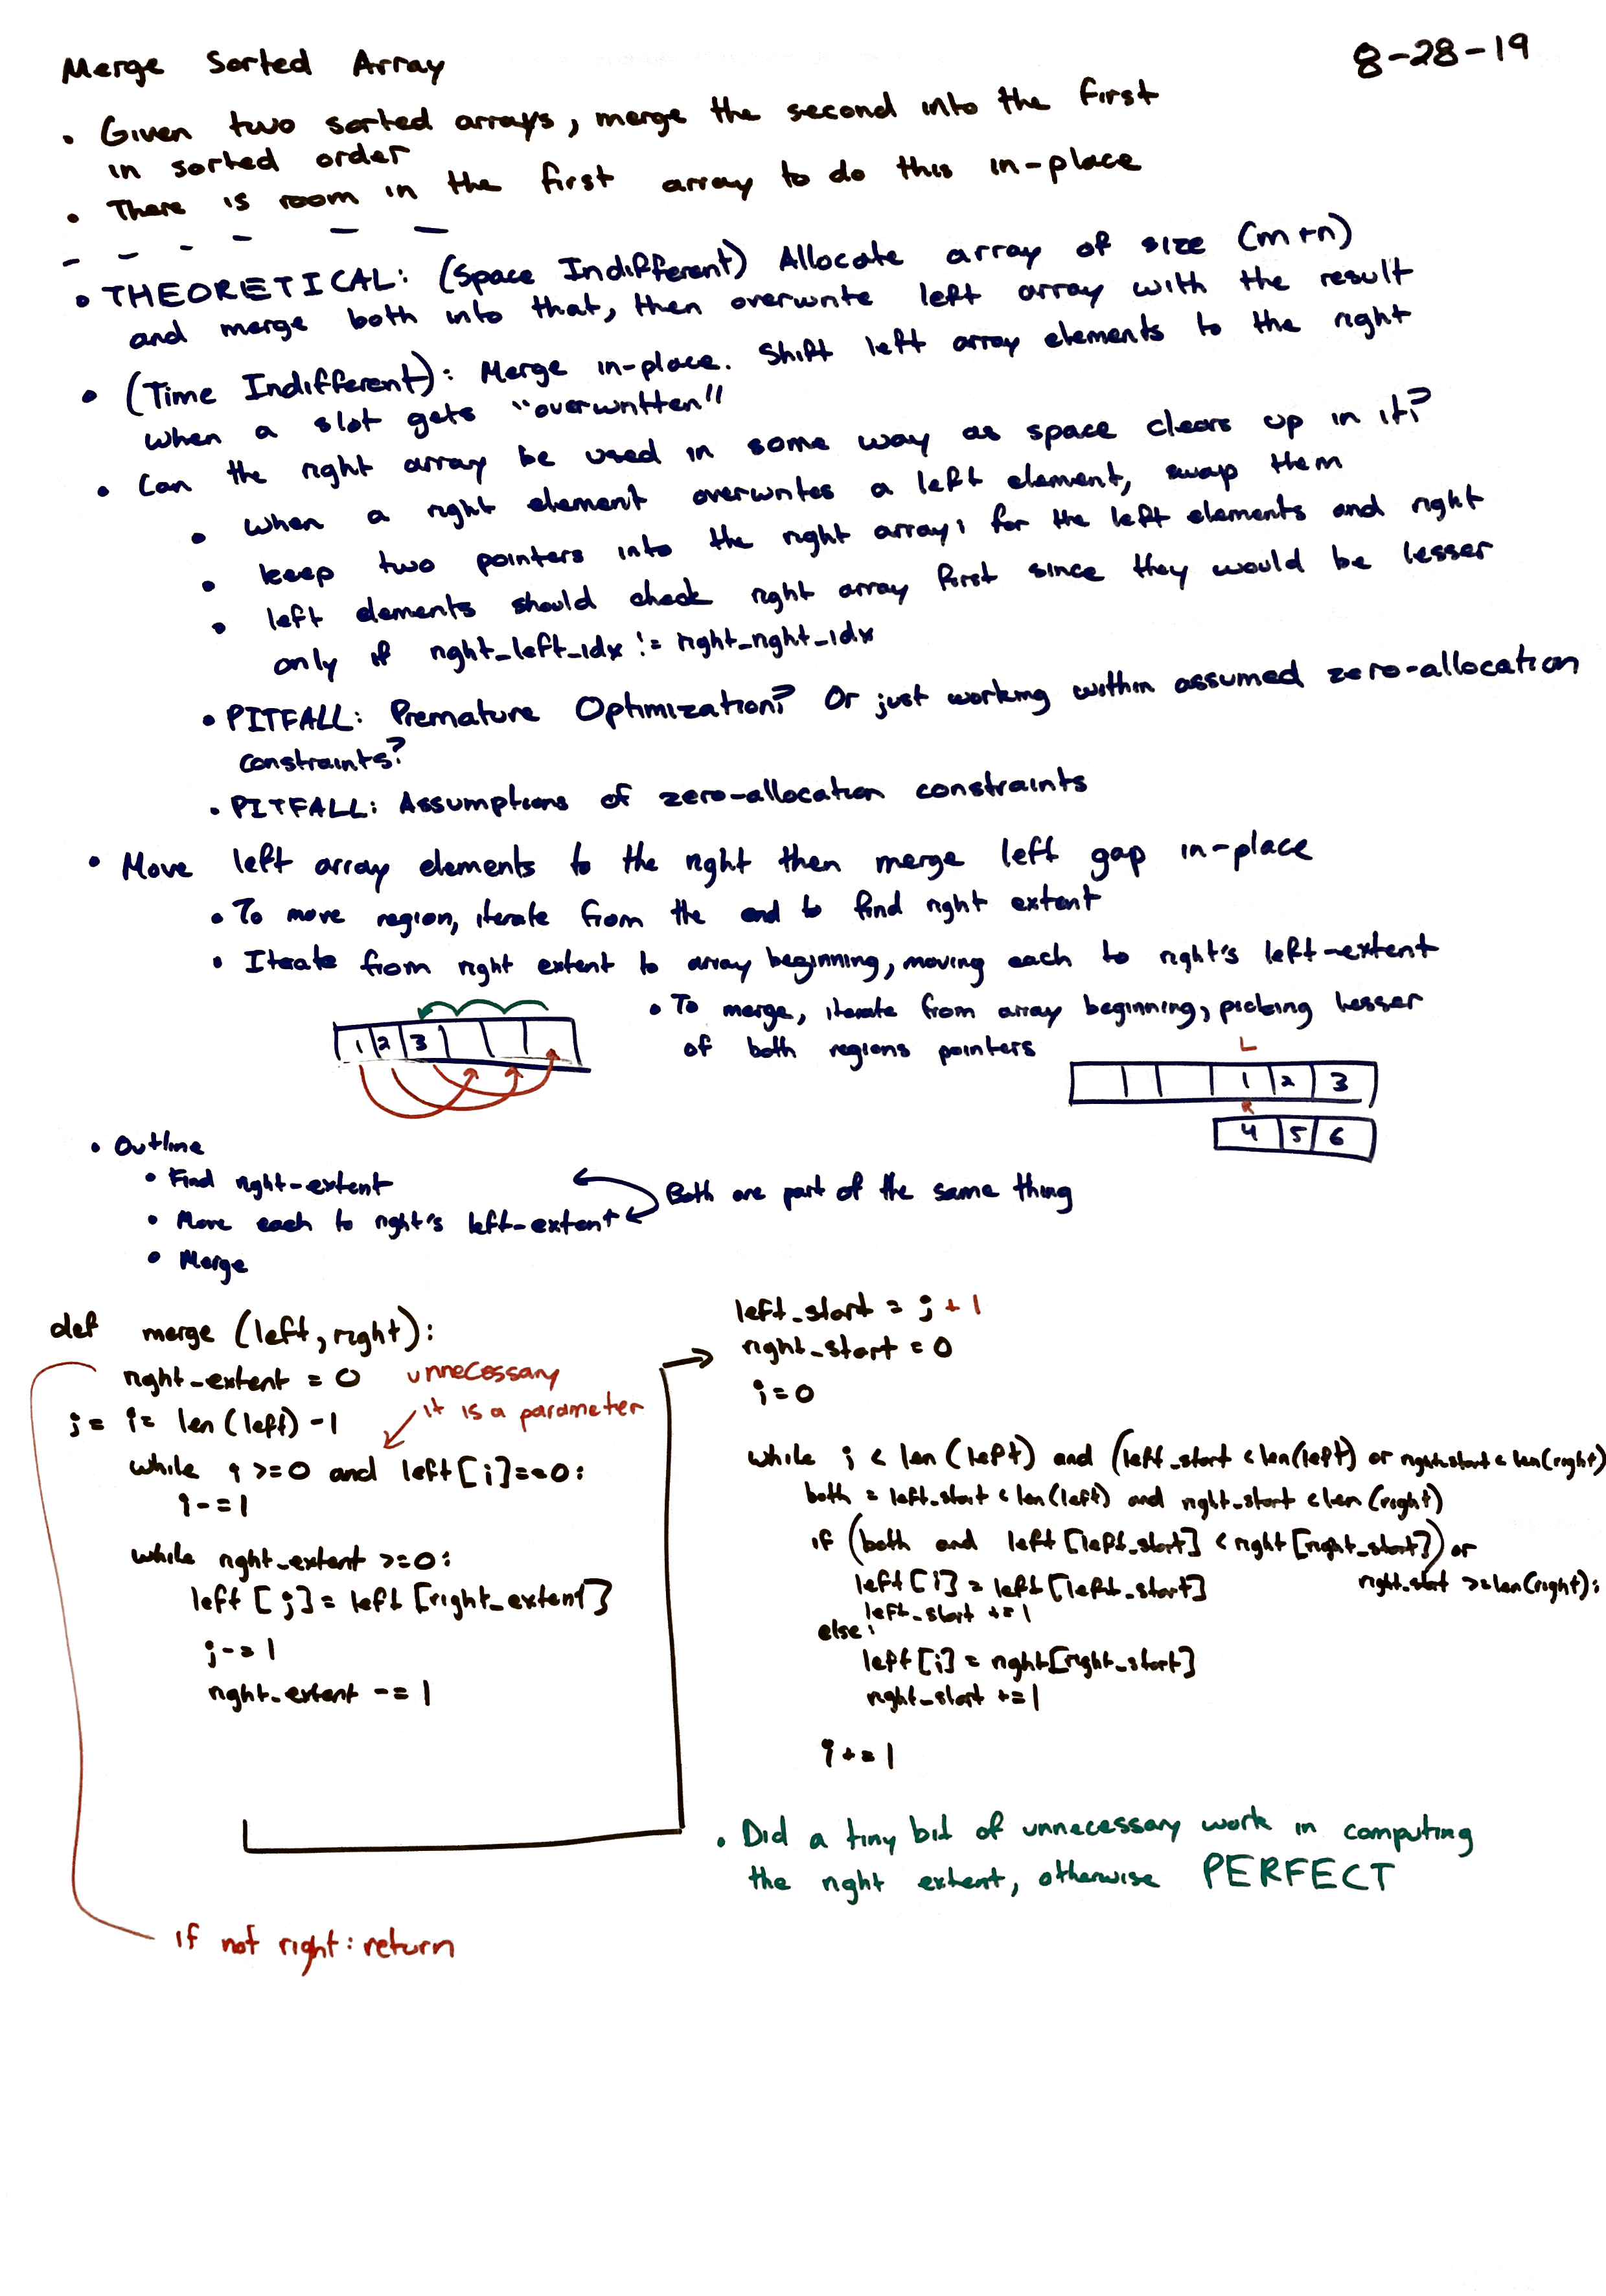 Merge Sorted Array
8-28-19
• Given two sorted arrays, merge the second into the first
in sorted order
• There is room in the first array to do this in-place
- - - - - -
• THEORETICAL: (Space Indifferent) Allocate array of size (m+n)
and merge both into that, then overwrite left array with the result
• (Time Indifferent): Merge in-place. Shift left array elements to the right
when a slot gets "overwritten"
• Can the right array be used in some way as space clears up in it?
• When a right element overwrites a left element, swap them
• keep two pointers into the right array; for the left elements and right
• left elements should check right array first since they would be lesser
only if right_left_idx != right_right_idx
• PITFALL: Premature Optimization? Or just working within assumed zero-allocation
constraints?
• PITFALL: Assumptions of zero-allocation constraints
• Move left array elements to the right then merge left gap in-place
• To move region, iterate from the end to find right extent
• Iterate from right extent to array beginning, moving each to right's left-extent
1 2 3
• To merge, iterate from array beginning, picking lesser
of both regions pointers
L
1 2 3
R
4 5 6
• Outline
• Find right-extent
• Move each to right's left-extent
Both are part of the same thing
• Merge
def merge (left, right):
right_extent = 0
unnecessary
it is a parameter
j = i = len(left) -1
while i >=0 and left[i]==0:
i-=1
while right_extent >=0:
left[j] = left[right_extent]
j-=1
right_extent -= 1
if not right: return
left_start = j + 1
right_start = 0
i=0
while i < len(left) and (left_start < len(left) or right_start < len(right)
both = left_start < len(left) and right_start < len(right)
if (both and left[left_start] < right[right_start]) or
right_start >= len(right):
left[i] = left[left_start]
left_start += 1
else:
left[i] = right[right_start]
right_start +=1
i+=1
• Did a tiny bit of unnecessary work in computing
the right extent, otherwise PERFECT